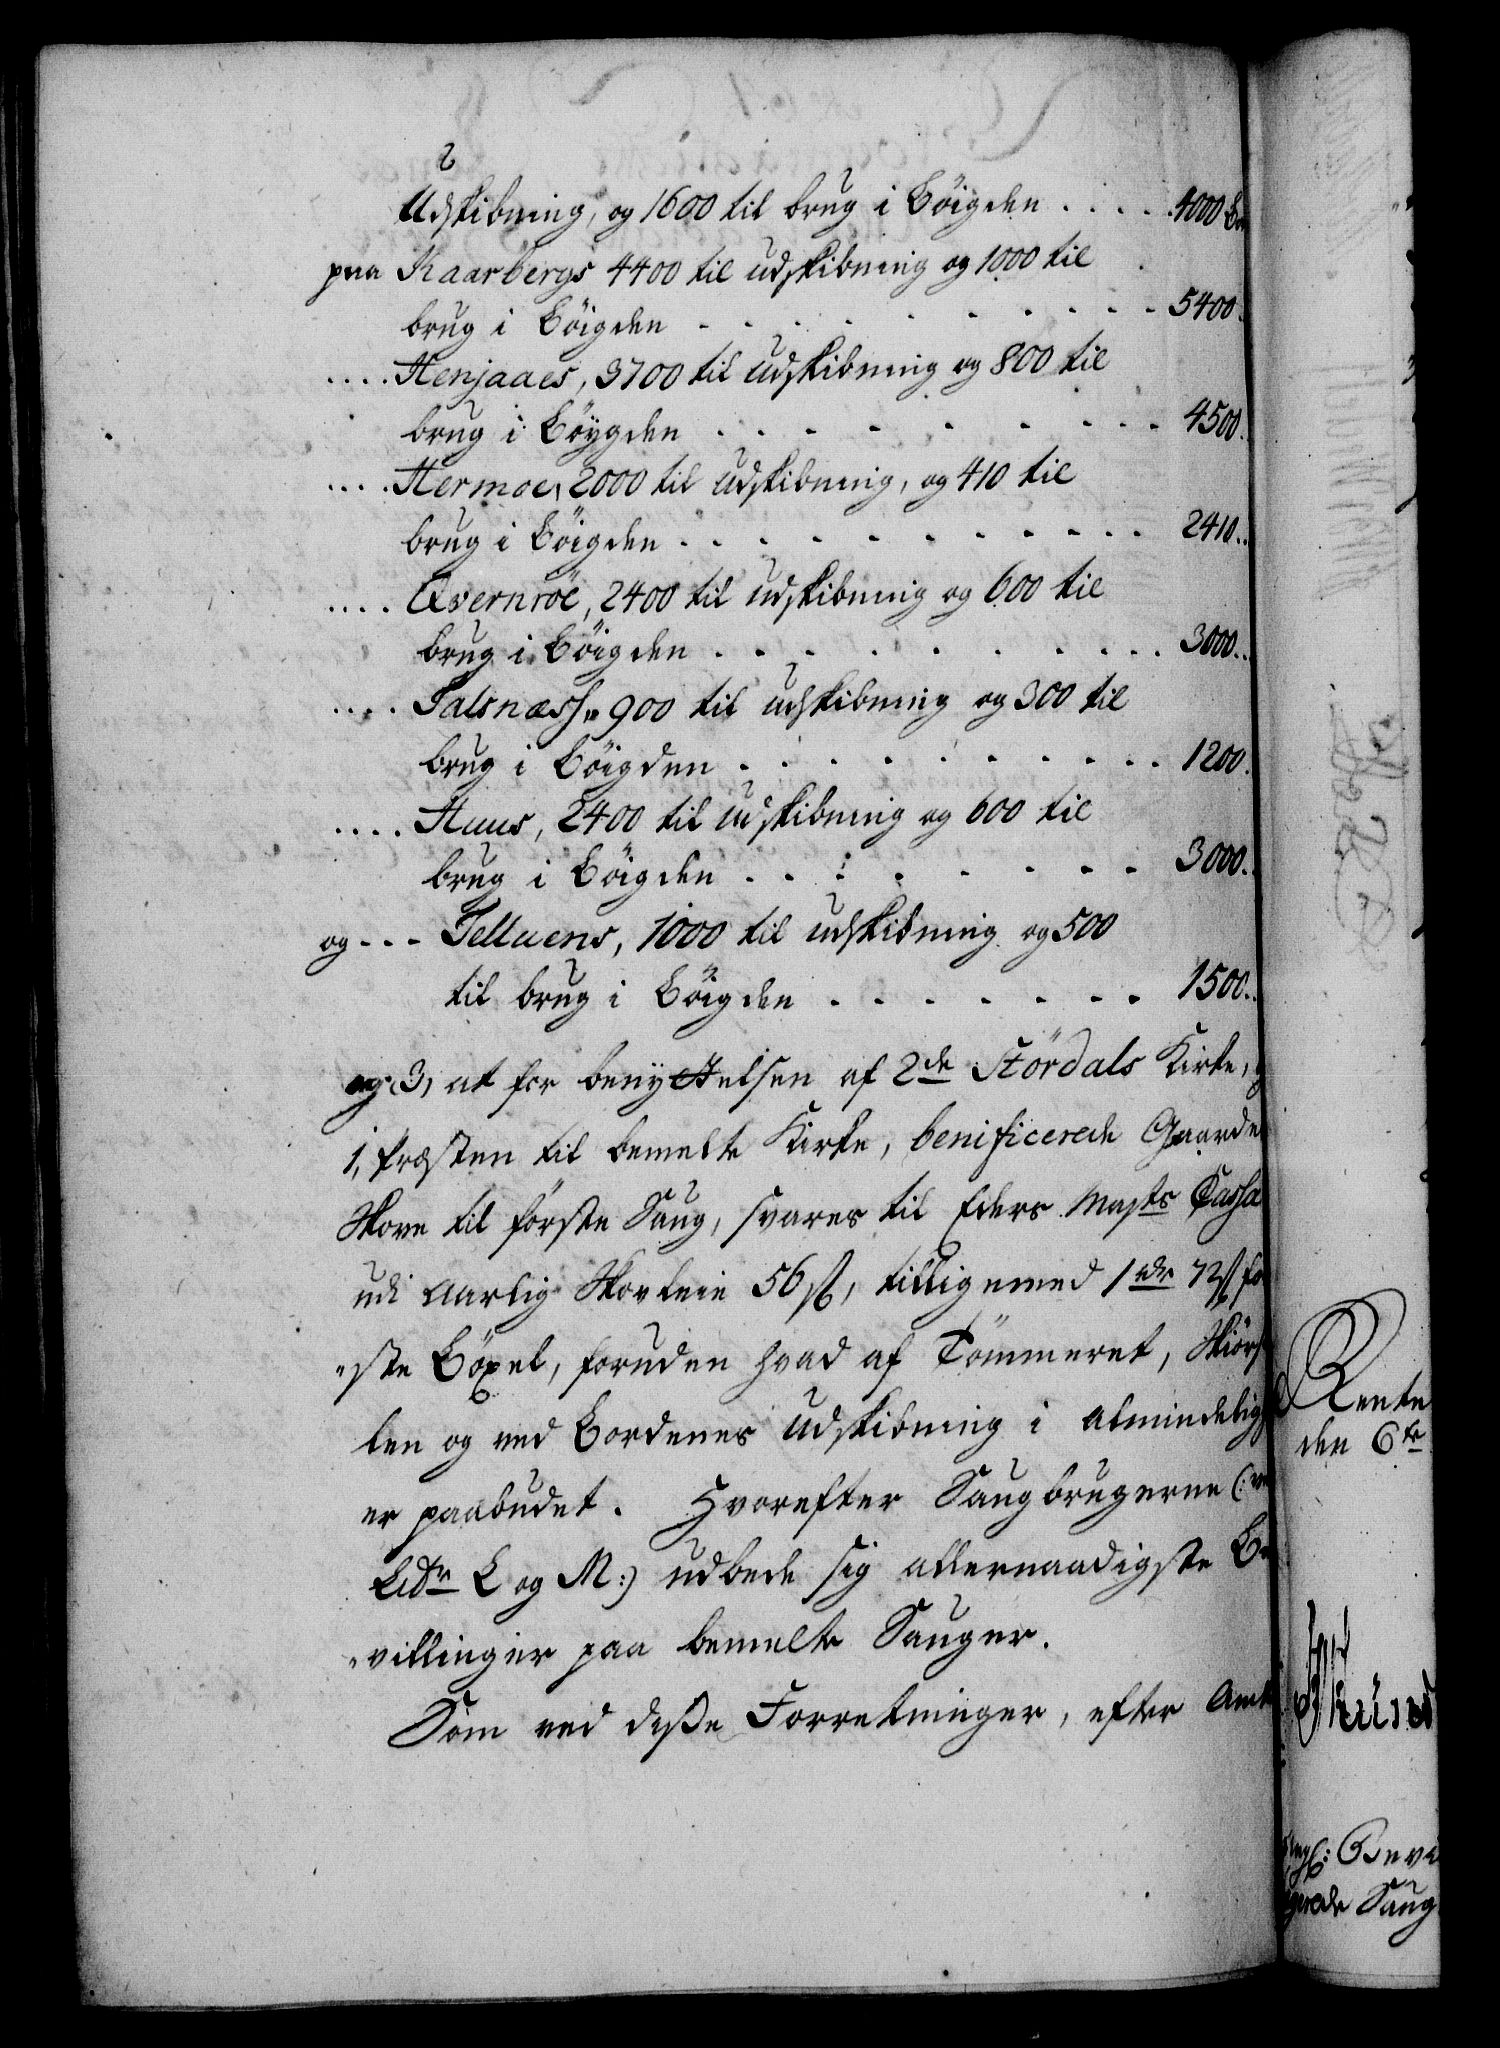 Udskibning, og 1600 til brug i Böigden . . . . . 4000
paa Kaarbergs 4400 til udskibning og 1000 til
brug i Böigden . . . . . . . . . 5400.
.... Henjaaes, 3700 til udskibning og 800 til
brug i Böygden . . . . . . . . . 4500.
.... Hermoe, 2000 til udskibning, og 410 til
brug i Böigden . . . . . . . . . 2410..
.... Qvernröe, 2400 til udskibning og 600 til
brug i Böigden . . . . . . . . . 3000..
.... Salsnæss, 900 til udskibning og 300 til
brug i Böigden . . . . . . . . . 1200.
.... Huus, 2400 til udskibning og 600 til
brug i Böigden . . . . . . . . . 3000..
og --- Selluens, 1000 til udskibning og 500
til brug i Böigden . . . . . . . 1500..
og 3, at for benyttelsen af 2de Stördals Kirke,
1, Præsten til bemelte Kirke, benificerede Gaarde
Skove til förste Saug, svares til Eders Mayts Cassa
udi aarlig Skovleie 56 s, tilligemed 1 rdr 72 s
"ste Böxel, foruden hvad af Tömmeret,
len og ved Bordenes Udskibning i almindelig
er paabudet. Hvorefter Saugbrugerne (:
Litr L og M:) udbede sig allernaadigste
"villinger paa bemelte Sauger.
Som ved disse Forretninger, efter Amt
Rente
den 6te
Saug